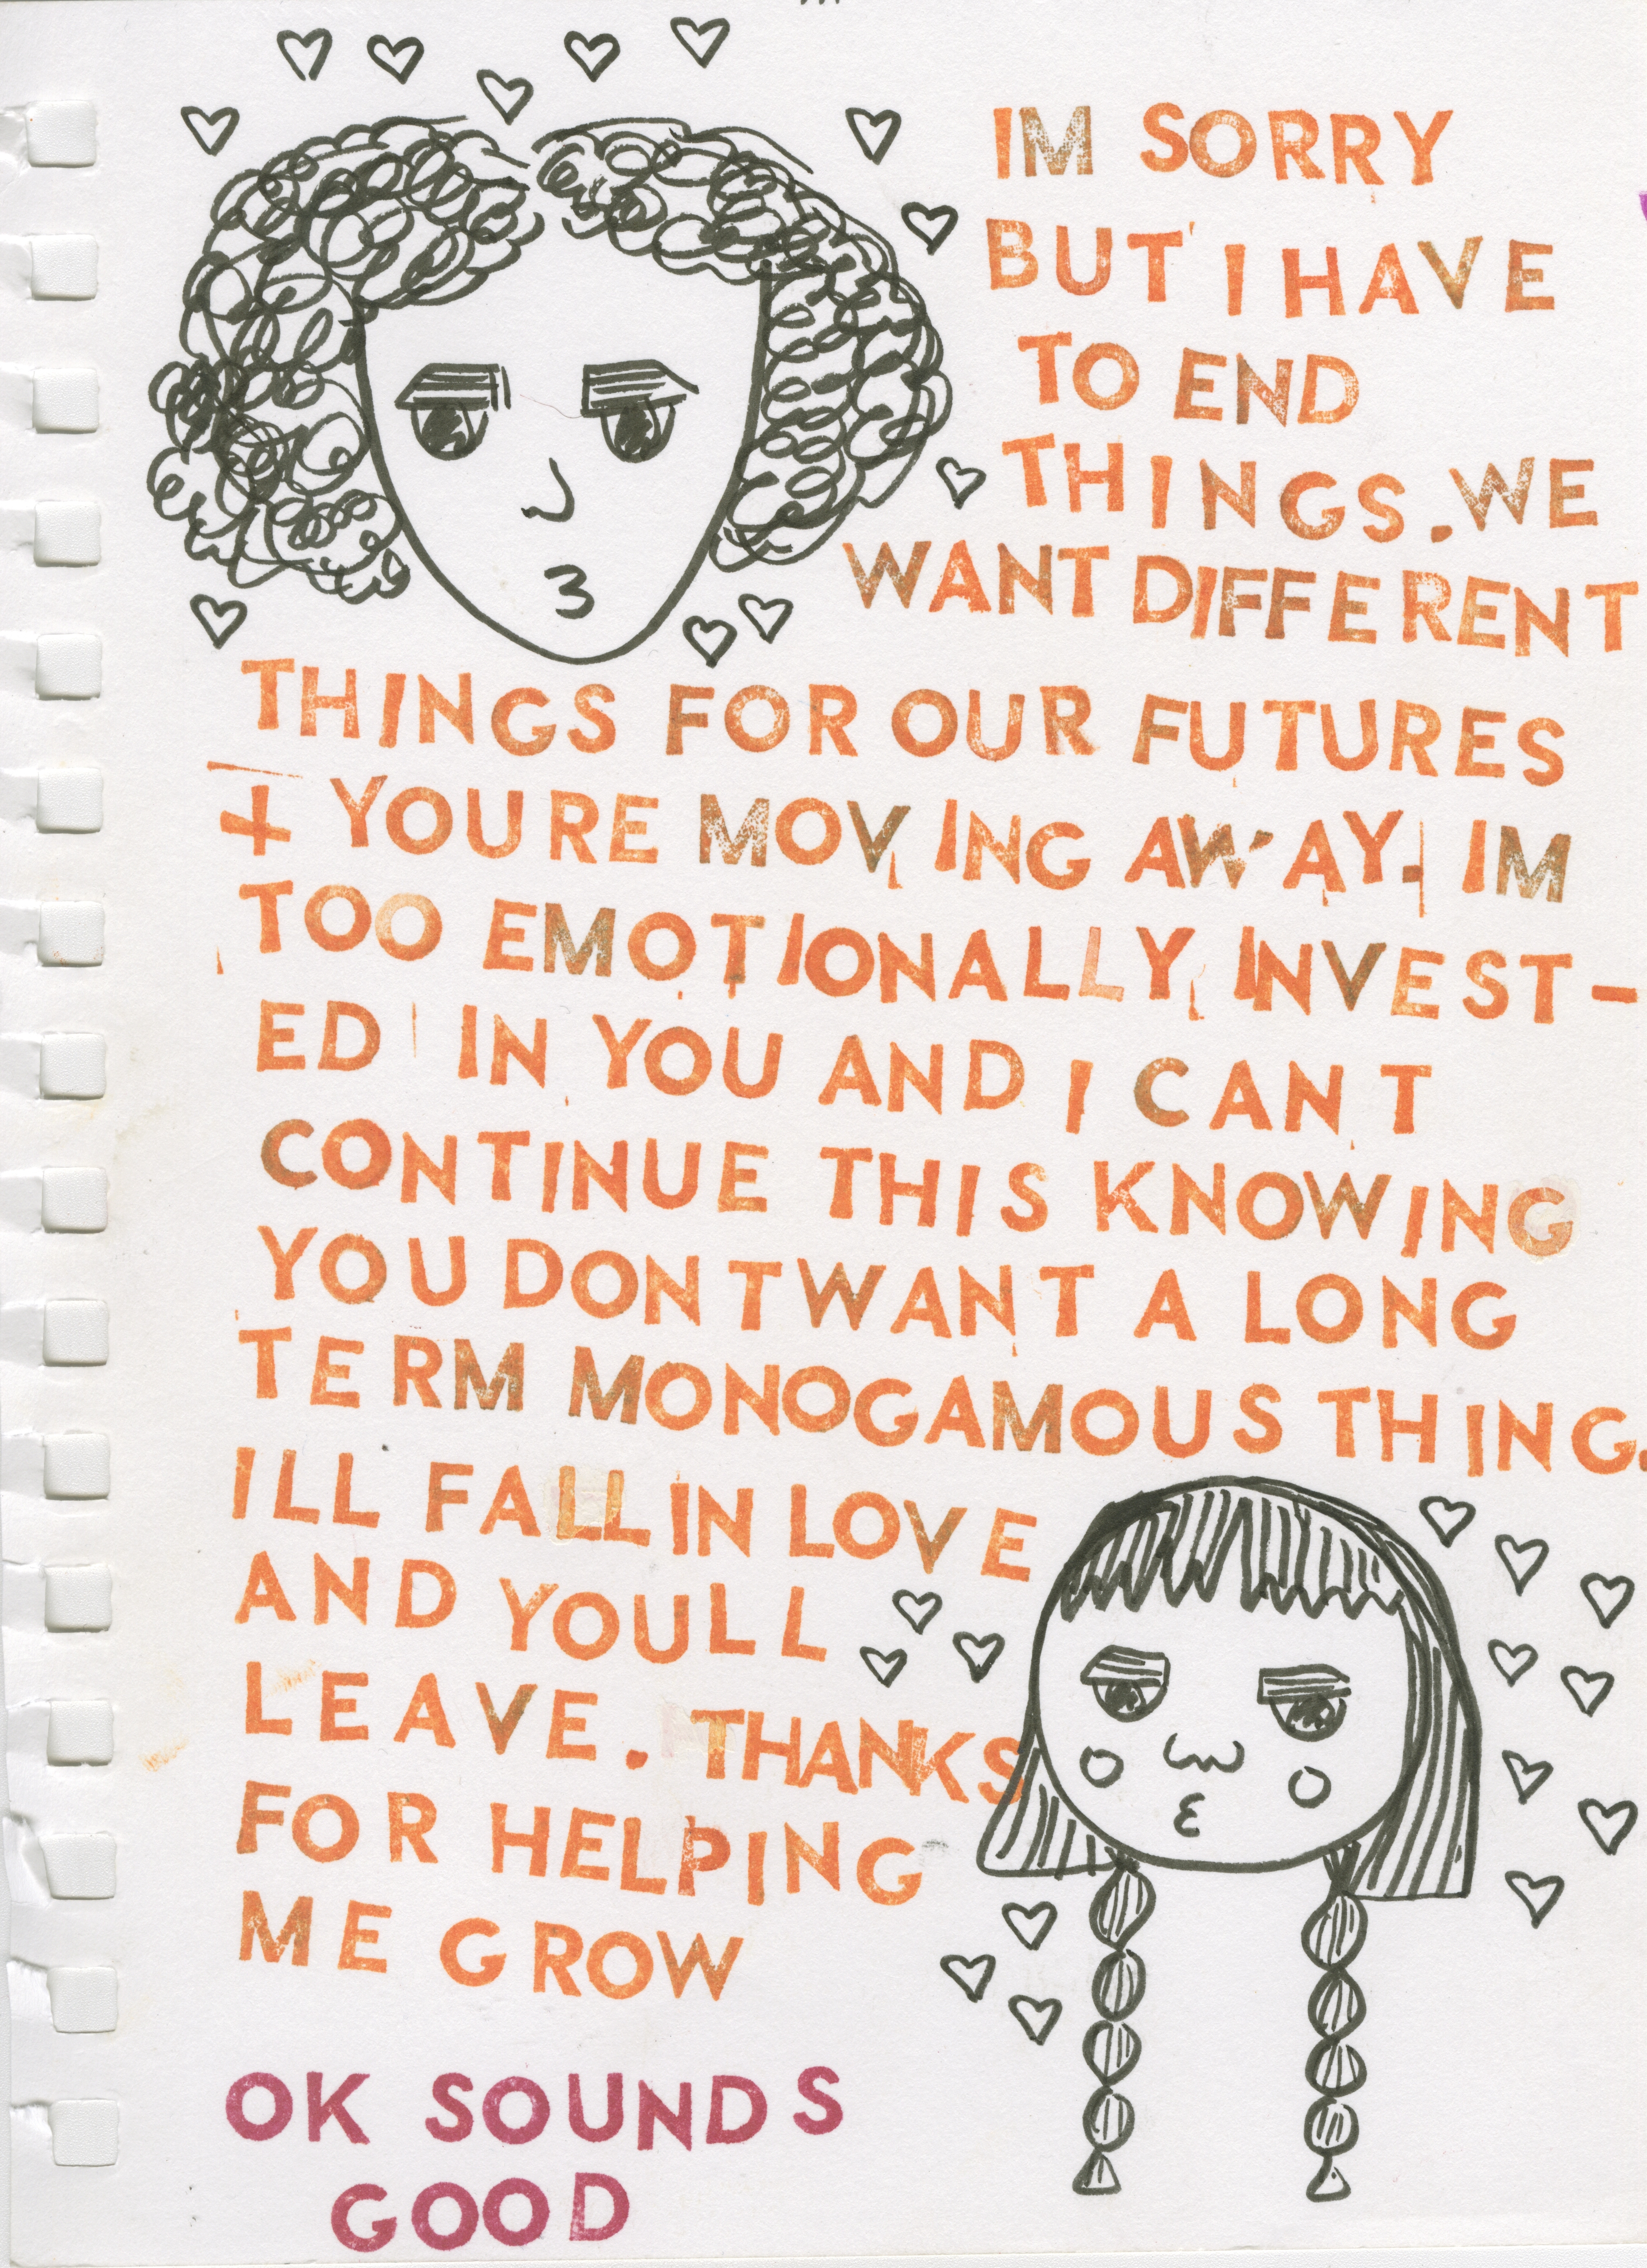 IM SORRY
BUT I HAVE
TO END
THINGS. WE
WANT DIFFERENT
THINGS FOR OUR FUTURES
+ YOURE MOVING AWAY. IM
TOO EMOTIONALLY INVEST-
ED IN YOU AND I CANT
CONTINUE THIS KNOWING
YOU DONT WANT A LONG
TERM MONOGAMOUS THING.
ILL FALL IN LOVE
AND YOULL
LEAVE. THANKS
FOR HELPING
ME GROW
OK SOUNDS
GOOD